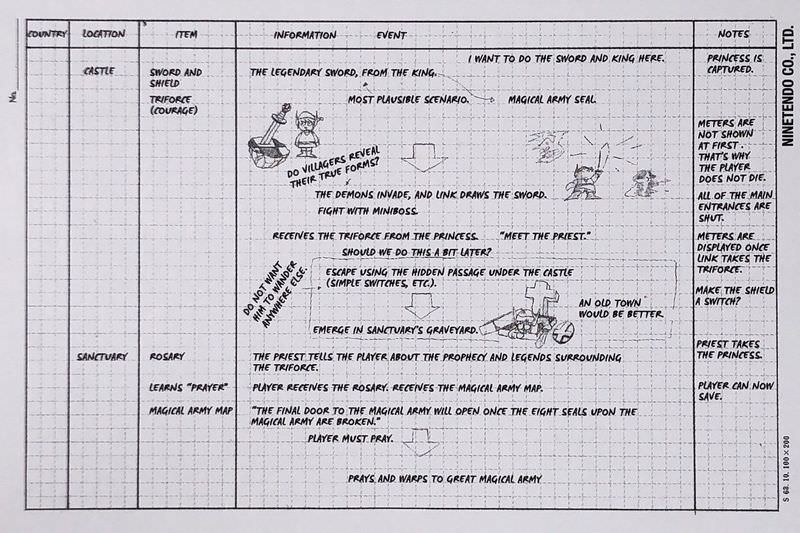 COUNTRY LOCATION ITEM INFORMATION EVENT NOTES
No.
NINETENDO CO., LTD.
I WANT TO DO THE SWORD AND KING HERE.
PRINCESS IS
CAPTURED.
CASTLE
SWORD AND
SHIELD
THE LEGENDARY SWORD, FROM THE KING.
TRIFORCE
(COURAGE)
MOST PLAUSIBLE SCENARIO.
MAGICAL ARMY SEAL.
METERS ARE
NOT SHOWN
AT FIRST.
THAT'S WHY
THE PLAYER
DOES NOT DIE.
DO VILLAGERS REVEAL
THEIR TRUE FORMS?
THE DEMONS INVADE, AND LINK DRAWS THE SWORD.
ALL OF THE MAIN
ENTRANCES ARE
SHUT.
FIGHT WITH MINIBOSS.
RECEIVES THE TRIFORCE FROM THE PRINCESS. "MEET THE PRIEST."
METERS ARE
DISPLAYED ONCE
LINK TAKES THE
TRIFORCE.
SHOULD WE DO THIS A BIT LATER?
DO NOT WANT
HIM TO WANDER
ANYWHERE ELSE.
ESCAPE USING THE HIDDEN PASSAGE UNDER THE CASTLE
(SIMPLE SWITCHES, ETC.).
MAKE THE SHIELD
A SWITCH?
AN OLD TOWN
WOULD BE BETTER.
EMERGE IN SANCTUARY'S GRAVEYARD.
PRIEST TAKES
THE PRINCESS.
SANCTUARY
ROSARY
THE PRIEST TELLS THE PLAYER ABOUT THE PROPHECY AND LEGENDS SURROUNDING
THE TRIFORCE.
LEARNS "PRAYER"
PLAYER RECEIVES THE ROSARY. RECEIVES THE MAGICAL ARMY MAP.
PLAYER CAN NOW
SAVE.
MAGICAL ARMY MAP
"THE FINAL DOOR TO THE MAGICAL ARMY WILL OPEN ONCE THE EIGHT SEALS UPON THE
MAGICAL ARMY ARE BROKEN."
PLAYER MUST PRAY.
PRAYS AND WARPS TO GREAT MAGICAL ARMY
S 63. 10. 100 × 200